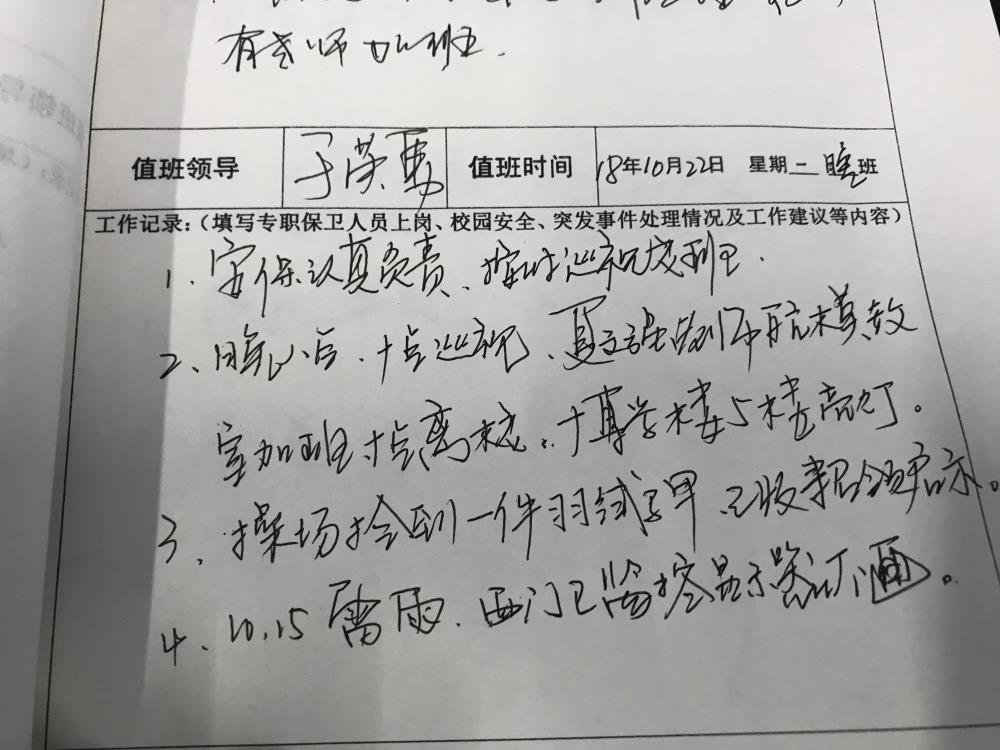 有老师加班.
值班领导 于英勇 值班时间 18年10月22日 星期二 晚班
工作记录:(填写专职保卫人员上岗、校园安全、突发事件处理情况及工作建议等内容)
1. 安保认真负责、按时巡视及到位.
2、晚八点、十点巡视、夏 老师航模教
室加班十点离校。博学楼5楼亮灯。
3、操场拾到一件羽绒 已 招领启示。
4、10.15 雷雨、西门卫监控显示器